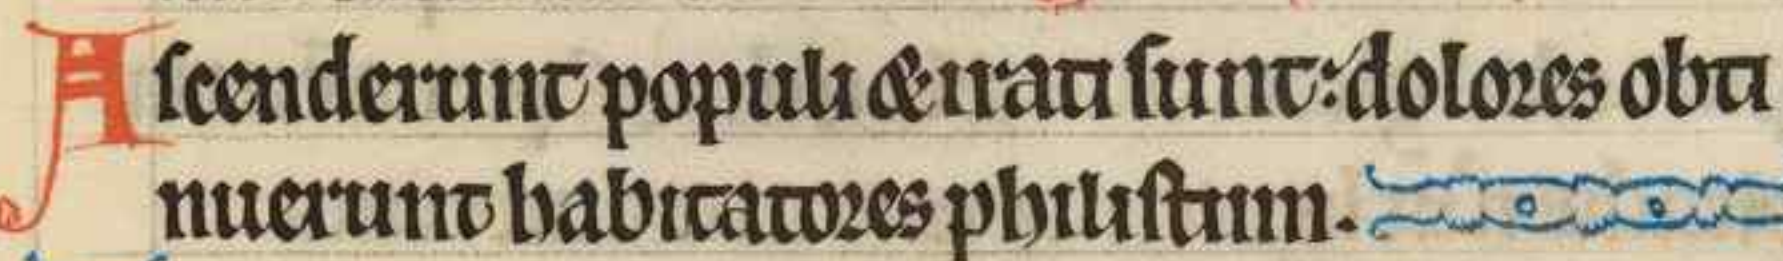 Ascenderunt populi & irati sunt: dolores obti
nuerunt habitatores philistiim.